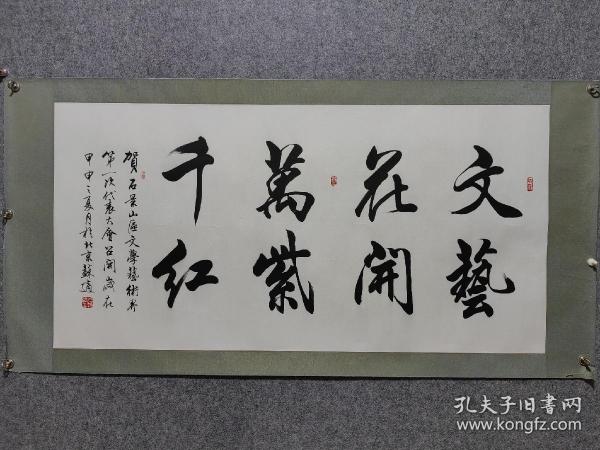 文藝
花開
萬紫
千红
賀石景山區文學藝術界
第一次代表大會召開歲在
甲申之夏月於北京蘇適
孔夫子旧書网
www.kongfz.com